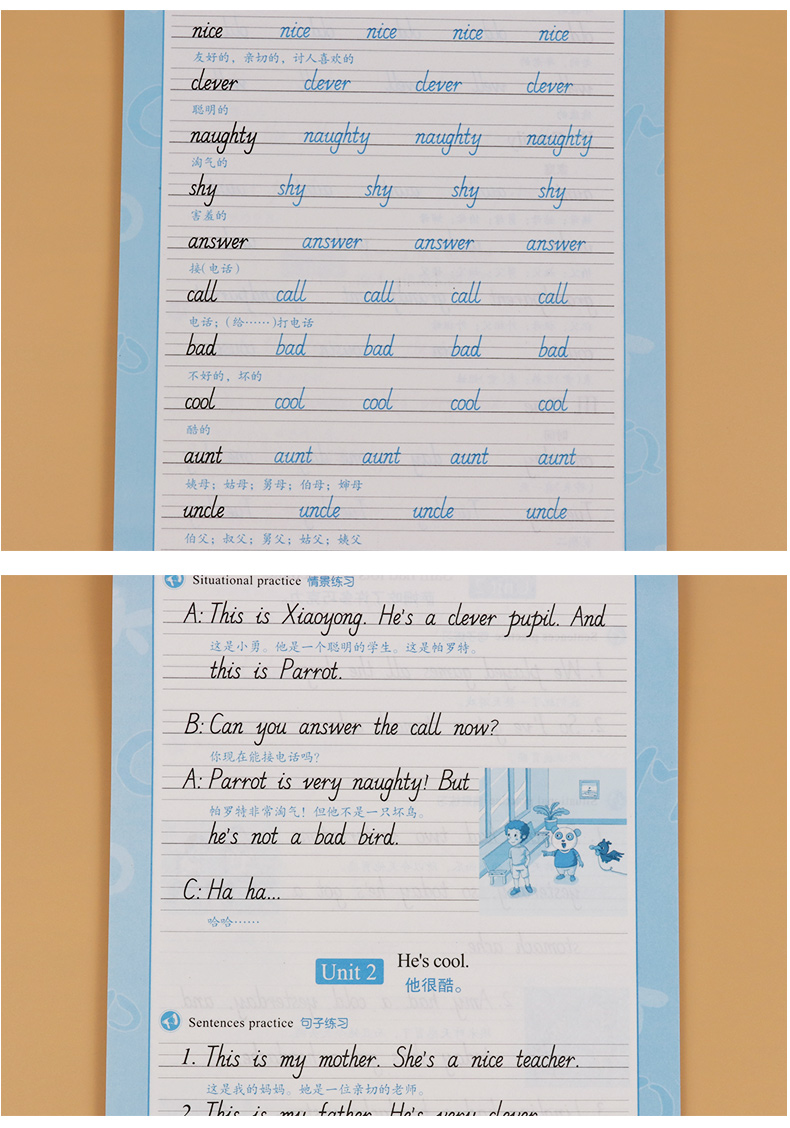 nice nice nice nice nice
友好的，亲切的，讨人喜欢的
clever clever clever clever
聪明的
naughty naughty naughty naughty
淘气的
shy shy shy shy shy
害羞的
answer answer answer answer
接(电话)
call call call call call
电话；(给……)打电话
bad bad bad bad bad
不好的，坏的
cool cool cool cool cool
酷的
aunt aunt aunt aunt aunt
姨母；姑母；舅母；伯母；婶母
uncle uncle uncle uncle
伯父；叔父；舅父；姑父；姨父
Situational practice 情景练习
A: This is Xiaoyong. He's a clever pupil. And
这是小勇。他是一个聪明的学生。这是帕罗特。
this is Parrot.
B: Can you answer the call now?
你现在能接电话吗？
A: Parrot is very naughty! But
帕罗特非常淘气！但他不是一只坏鸟。
he's not a bad bird.
C: Ha ha...
哈哈……
Unit 2 He's cool.
他很酷。
Sentences practice 句子练习
1. This is my mother. She's a nice teacher.
这是我的妈妈。她是一位亲切的老师。
2. This is my father. He's very clever.